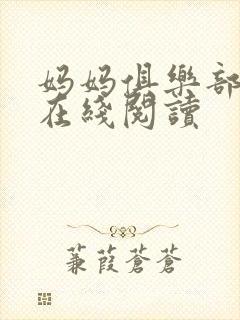 妈妈俱樂部
在綫閱讀
蒹葭蒼蒼